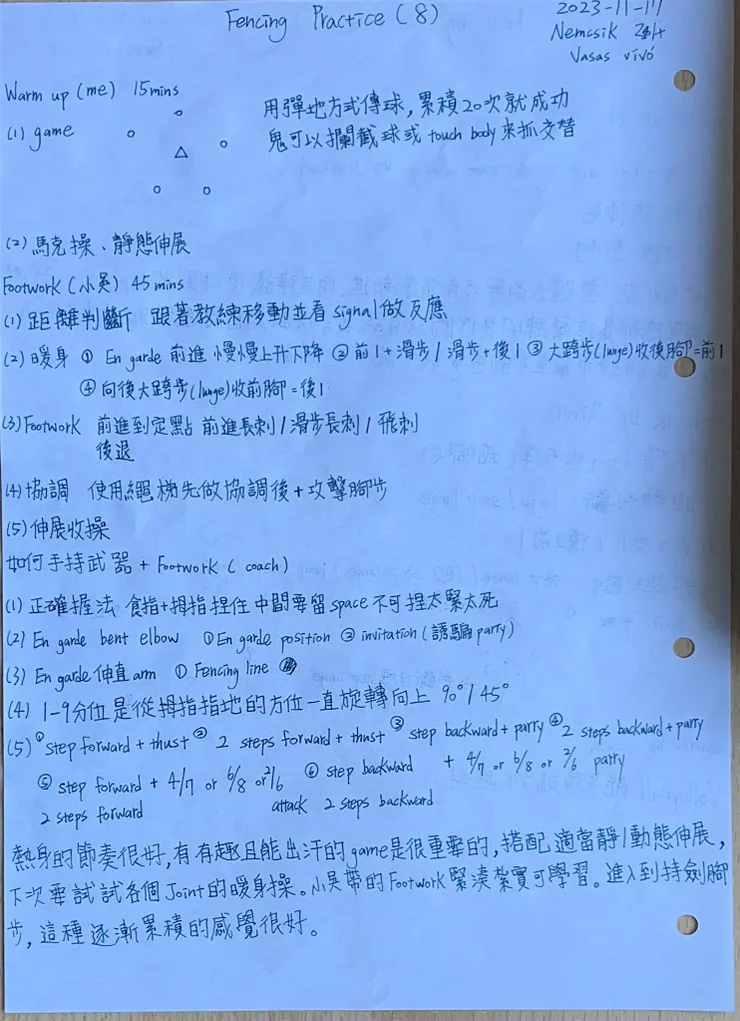 Fencing Practice (8)
2023-11-17
Nemcsik Zsolt
Vasas vívó
Warm up (me) 15mins
(1) game
用彈地方式傳球，累積20次就成功
鬼可以攔截球或 touch body 來抓交替
(2) 馬克操、靜態伸展
Footwork (小吳) 45 mins
(1) 距離判斷 跟著教練移動並看 signal 做反應
(2) 暖身 ① En garde 前進 慢慢上升下降 ② 前1+滑步/滑步+後1 ③ 大跨步(lunge)收後腳=前1
④ 向後大跨步(lunge)收前腳=後1
(3) Footwork 前進到定點 前進長刺/滑步長刺/飛刺
後退
(4) 協調 使用繩梯先做協調後+攻擊腳步
(5) 伸展收操
如何手持武器 + Footwork (coach)
(1) 正確握法 食指+拇指捏住 中間要留 space 不可捏太緊太死
(2) En garde bent elbow ① En garde position ② invitation (誘騙 parry)
(3) En garde 伸直 arm ① Fencing line
(4) 1-9分位是從拇指指地的方位一直旋轉向上 90°/45°
(5) ① step forward + thust ② 2 steps forward + thust ③ step backward + parry ④ 2 steps backward + parry
⑤ step forward + 4/7 or 6/8 or 2/6 ⑥ step backward + 4/7 or 6/8 or 2/6 parry
2 steps forward attack 2 steps backward
熱身的節奏很好，有有趣且能出汗的game是很重要的，搭配適當靜/動態伸展，
下次要試試各個Joint的暖身操。小吳帶的Footwork緊湊紮實可學習。進入到持劍腳
步，這種逐漸累積的感覺很好。